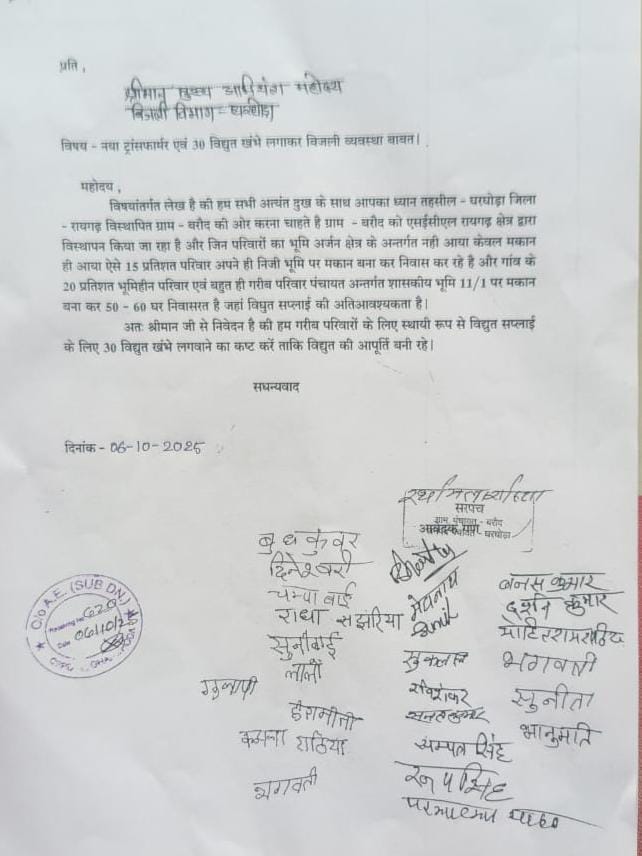 प्रति ,
श्रीमान मुख्य अभियंता महोदय
बिजली विभाग - घरघोड़ा
विषय - नया ट्रांसफार्मर एवं 30 विद्युत खंभे लगाकर विजली व्यवस्था बावत।
महोदय ,
विषयांतर्गत लेख है की हम सभी अत्यंत दुख के साथ आपका ध्यान तहसील - घरघोड़ा जिला
- रायगढ़ विस्थापित ग्राम - बरौद की ओर करना चाहते है ग्राम - बरौद को एसईसीएल रायगढ़ क्षेत्र द्वारा
विस्थापन किया जा रहा है और जिन परिवारों का भूमि अर्जन क्षेत्र के अन्तर्गत नही आया केवल मकान
ही आया ऐसे 15 प्रतिशत परिवार अपने ही निजी भूमि पर मकान बना कर निवास कर रहे है और गांव के
20 प्रतिशत भूमिहीन परिवार एवं बहुत ही गरीब परिवार पंचायत अन्तर्गत शासकीय भूमि 11/1 पर मकान
बना कर 50 - 60 घर निवासरत है जहां विघुत सप्लाई की अतिआवश्यकता है।
अतः श्रीमान जी से निवेदन है की हम गरीब परिवारों के लिए स्थायी रूप से विद्युत सप्लाई
के लिए 30 विद्युत खंभे लगवाने का कष्ट करें ताकि विद्युत की आपूर्ति बनी रहे।
सधन्यवाद
दिनांक - 06-10-2025
सरपंच
ग्राम पंचायत - बरौद
आवेदक गण
घरघोड़ा
बुधकुंवर
दिनेश्वरी
चम्पा बाई
राधा सझरिया
सुनीबाई
लाली
कमला राठिया
भगवती
मेघनाथ
Sunil
सुकलाल
रविशंकर
चम्पत सिंह
रूपसिंह
परमात्मा
बनस कुमार
दर्शन कुमार
भगवती
सुनीता
भानुमति
O/o A.E. (SUB DN.)
620
Date 06/10/2